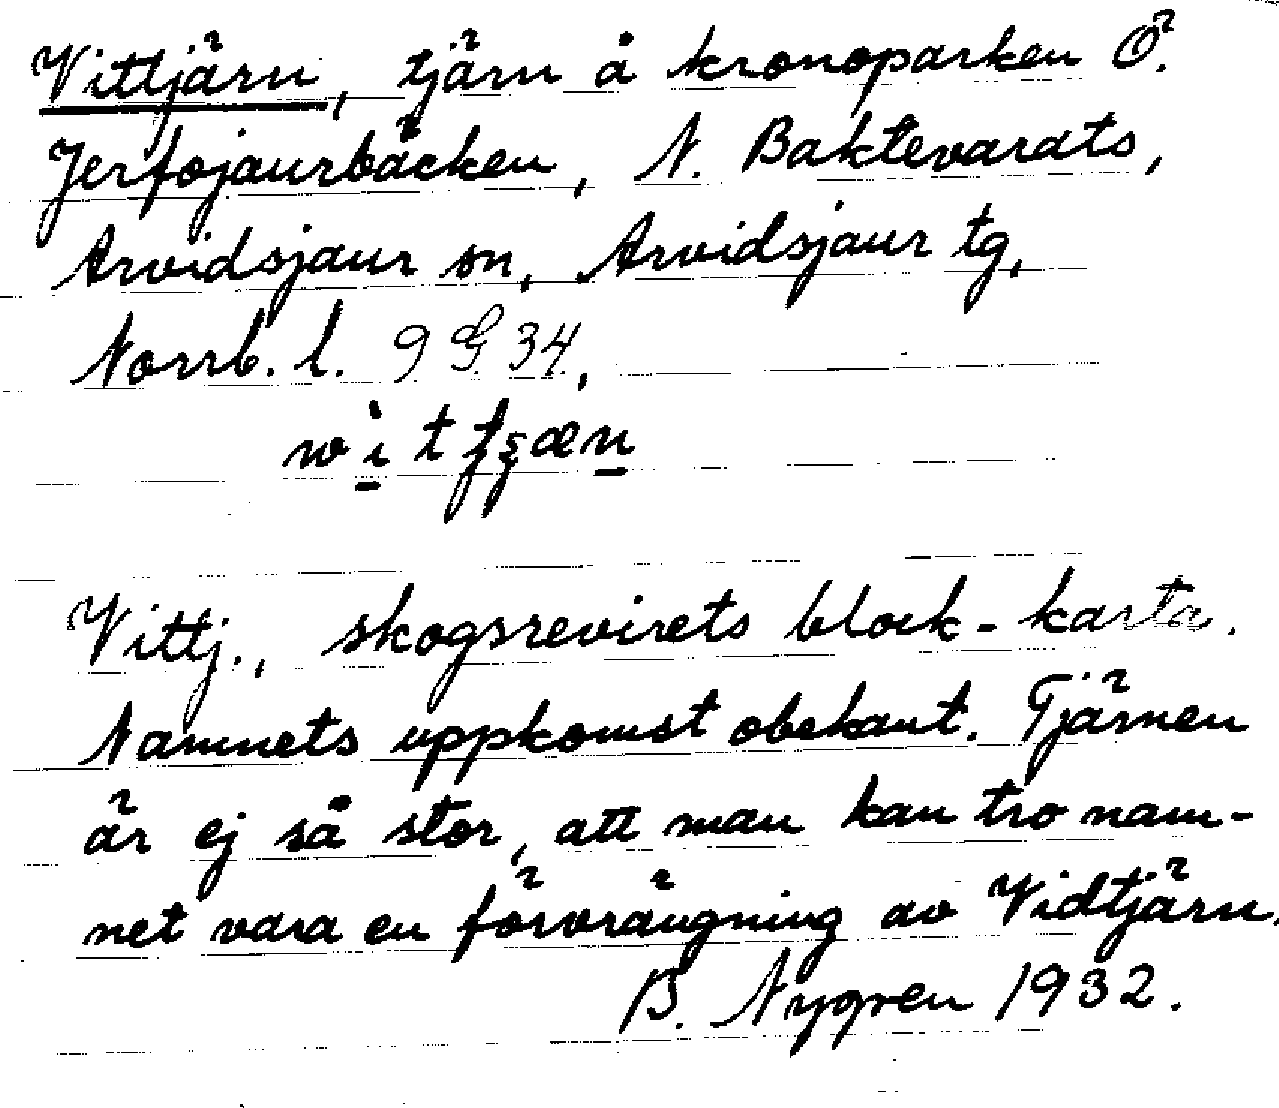 Vittjärn, tjärn å kronoparken Ö.
Jerfojaurbäcken, N. Baktevarats,
Arvidsjaur sn, Arvidsjaur tg,
Norrb. l. 9 G 34,
Vittj., skogsrevirets block-karta.
Namnets uppkomst obekant. Tjärnen
är ej så stor, att man kan tro nam-
net vara en förvrängning av Vidtjärn.
B. Nygren 1932.